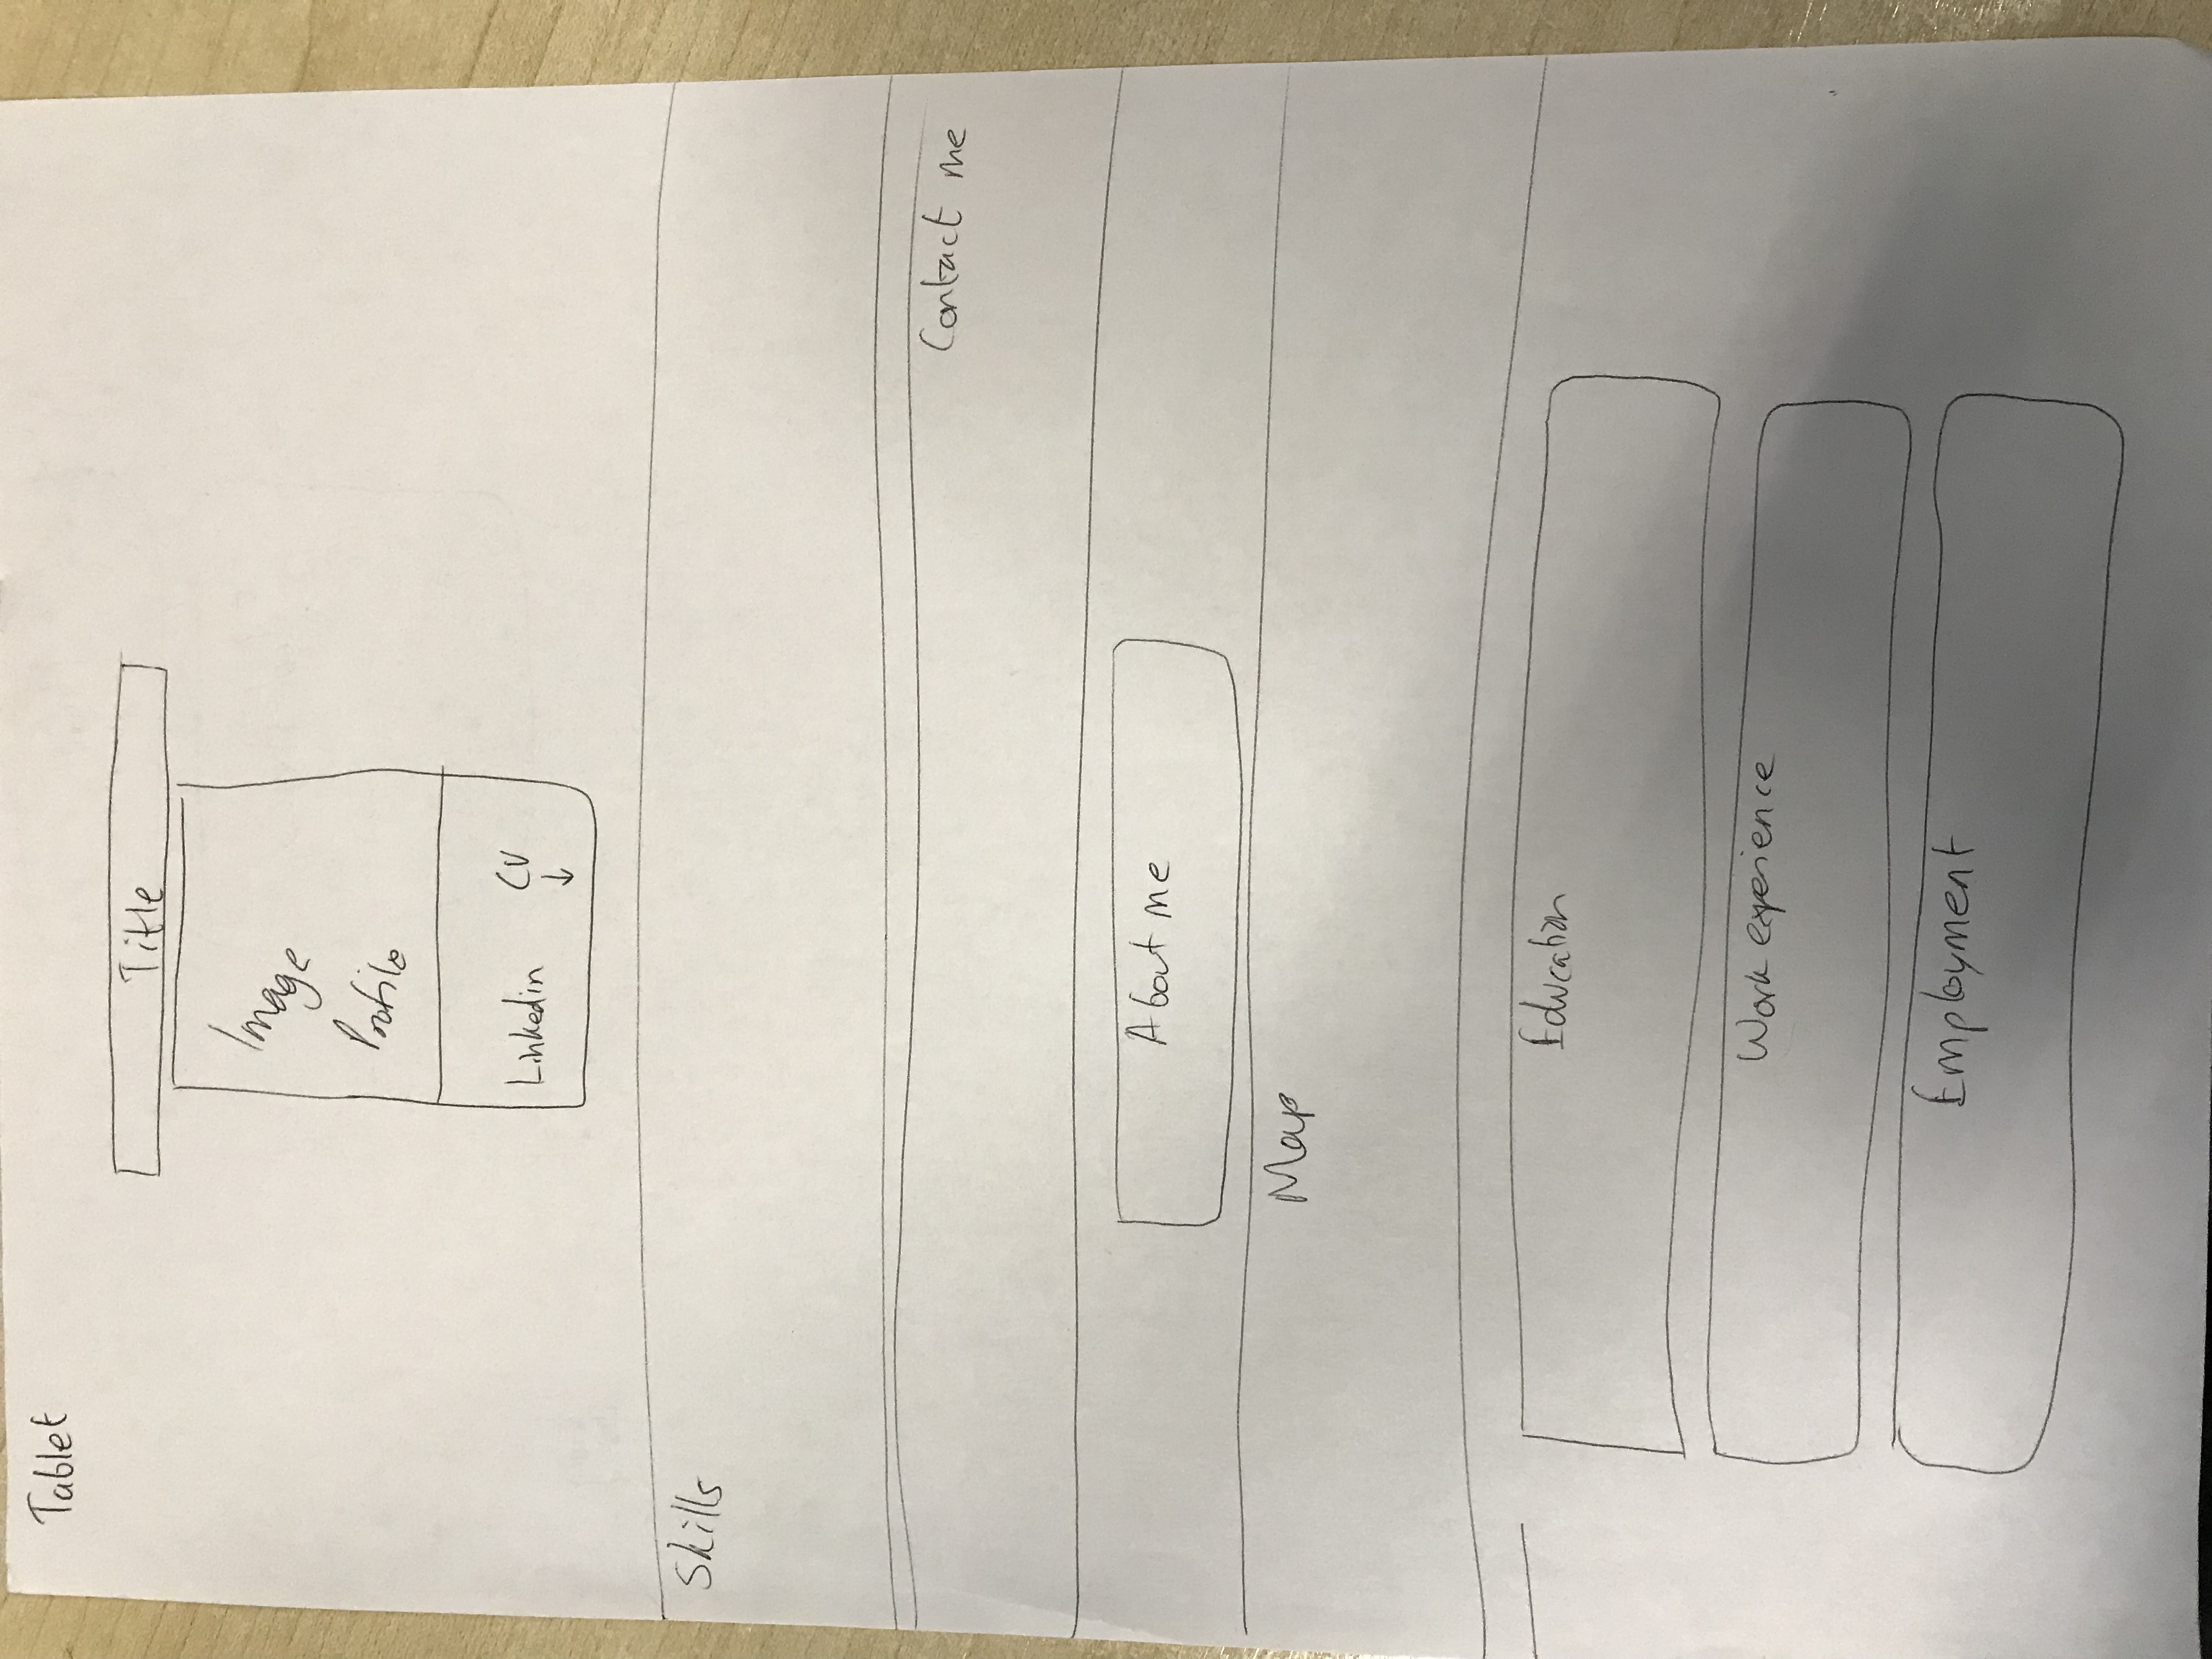 Tablet
Title
Image
Profile
Linkedin CV
Skills
Contact me
About me
Map
Education
Work experience
Employment